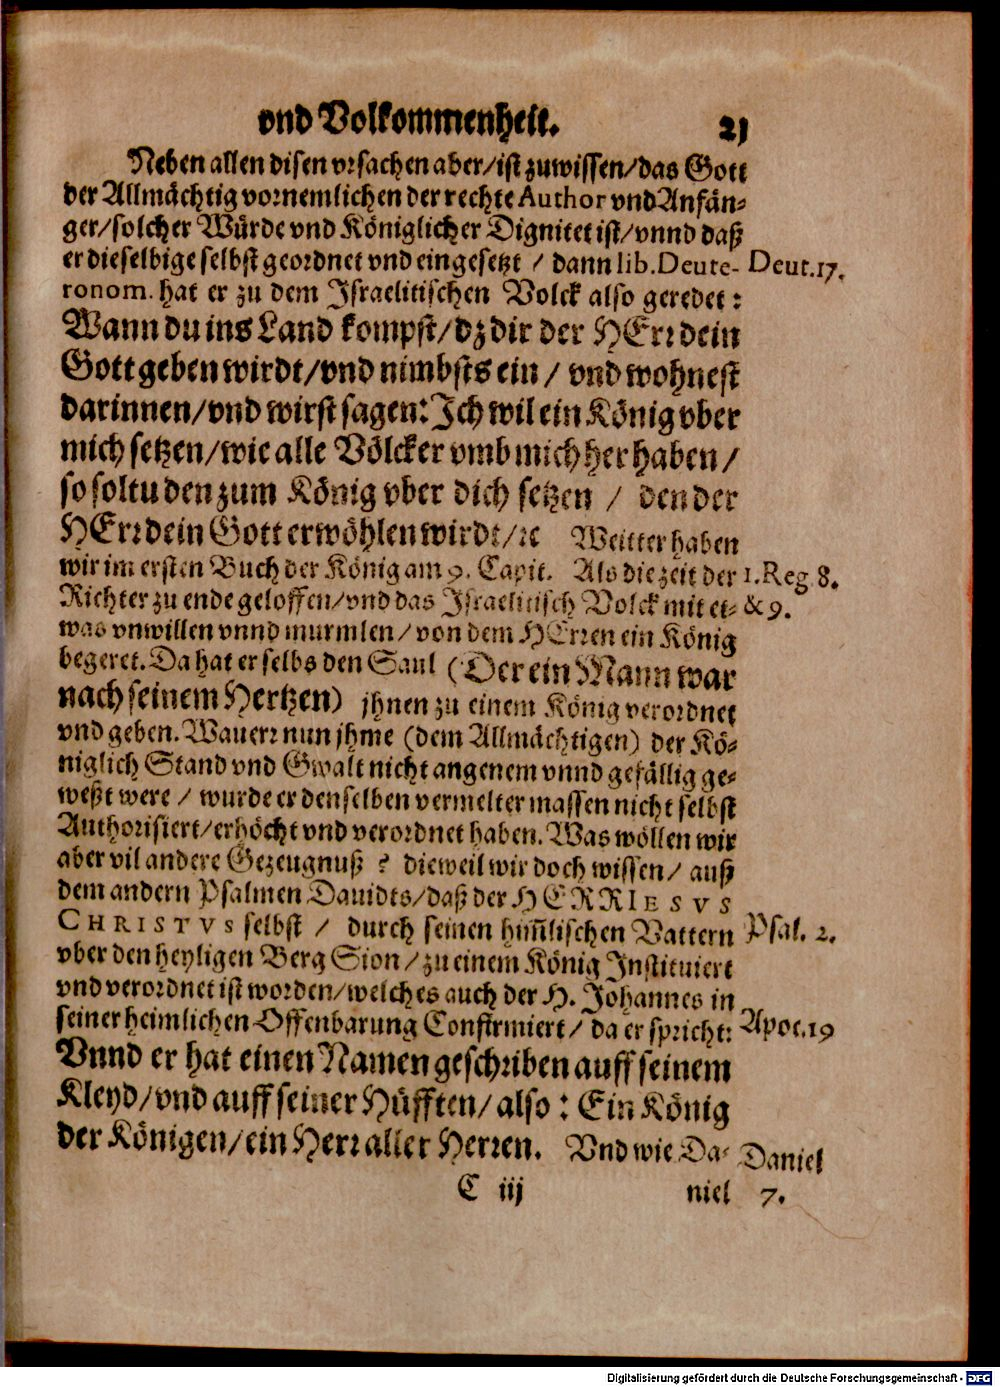 vnd Volkommenheit. 21
Neben allen disen vrsachen aber/ist zuwissen/das Gott
der Allmächtig vornemlichen der rechte Author vnd Anfän-
ger/solcher Würde vnd Königlicher Dignitet ist/vnnd daß
er dieselbige selbst geordnet vnd eingesetzt / dann lib. Deute- Deut. 17.
ronom. hat er zu dem Israelitischen Volck also geredet :
Wann du ins Land kompst/dz dir der HErr dein
Gott geben wirdt/vnd nimbsts ein / vnd wohnest
darinnen/vnd wirst sagen: Ich wil ein König vber
mich setzen/wie alle Völcker vmb mich her haben /
so soltu den zum König vber dich setzen / den der
HErr dein Gott erwöhlen wirdt/ꝛc Weitter haben
wir im ersten Buch der König am 9. Capit. Als die zeit der 1. Reg 8.
Richter zu ende geloffen/vnd das Israelitisch Volck mit et- & 9.
was vnwillen vnnd murmlen/von dem HErren ein König
begeret. Da hat er selbs den Saul (Der ein Mann war
nach seinem Hertzen) jhnen zu einem König verordnet
vnd geben. Wauerr nun jhme (dem Allmächtigen) der Kö-
niglich Stand vnd Gwalt nicht angenem vnnd gefällig ge-
weßt were / wurde er denselben vermelter massen nicht selbst
Authorisiert/erhöcht vnd verordnet haben. Was wöllen wir
aber vil andere Gezeugnuß ? dieweil wir doch wissen/ auß
dem andern Psalmen Dauidts/daß der HERR IESVS
CHRISTVS selbst / durch seinen him̃lischen Vattern Psal. 2.
vber den heyligen Berg Sion/zu einem König Instituiert
vnd verordnet ist worden/welches auch der H. Johannes in
seiner heimlichen Offenbarung Confirmiert/ da er spricht: Apoc. 19
Vnnd er hat einen Namen geschriben auff seinem
Kleyd/vnd auff seiner Hüfften/also : Ein König
der Königen/ein Herr aller Herren. Vnd wie Da- Daniel
C iij niel 7.
Digitalisierung gefördert durch die Deutsche Forschungsgemeinschaft - DFG